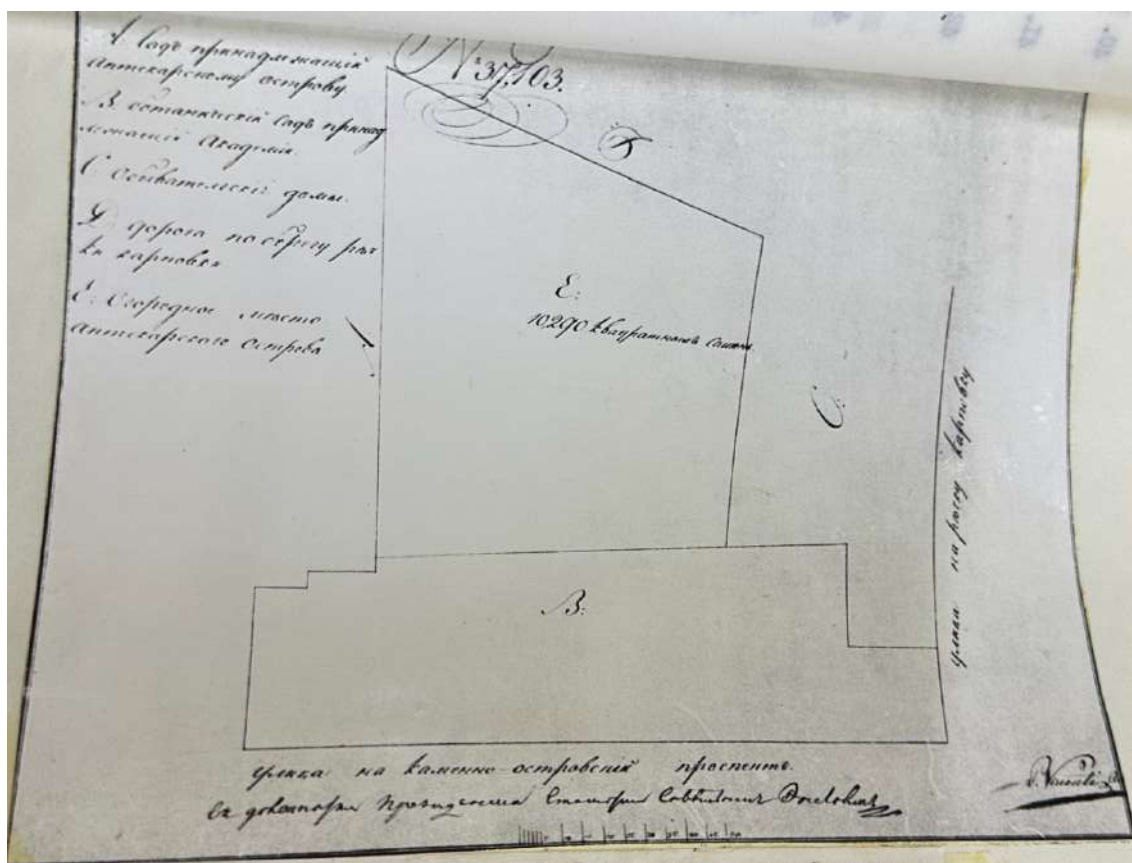 А. Садъ принадлежащій
Аптекарскому острову.
В. ботаническій садъ принад
лежащій Академіи.
С обывательскіе домы.
D. дорога по берегу рѣч
ки карповки
Е: Огородное место
Аптекарского острова
№ 37,103.
D
Е:
10290 квадратныхъ сажень.
С:
В:
улица на речку карповку
улица на каменно-островскій проспектъ.